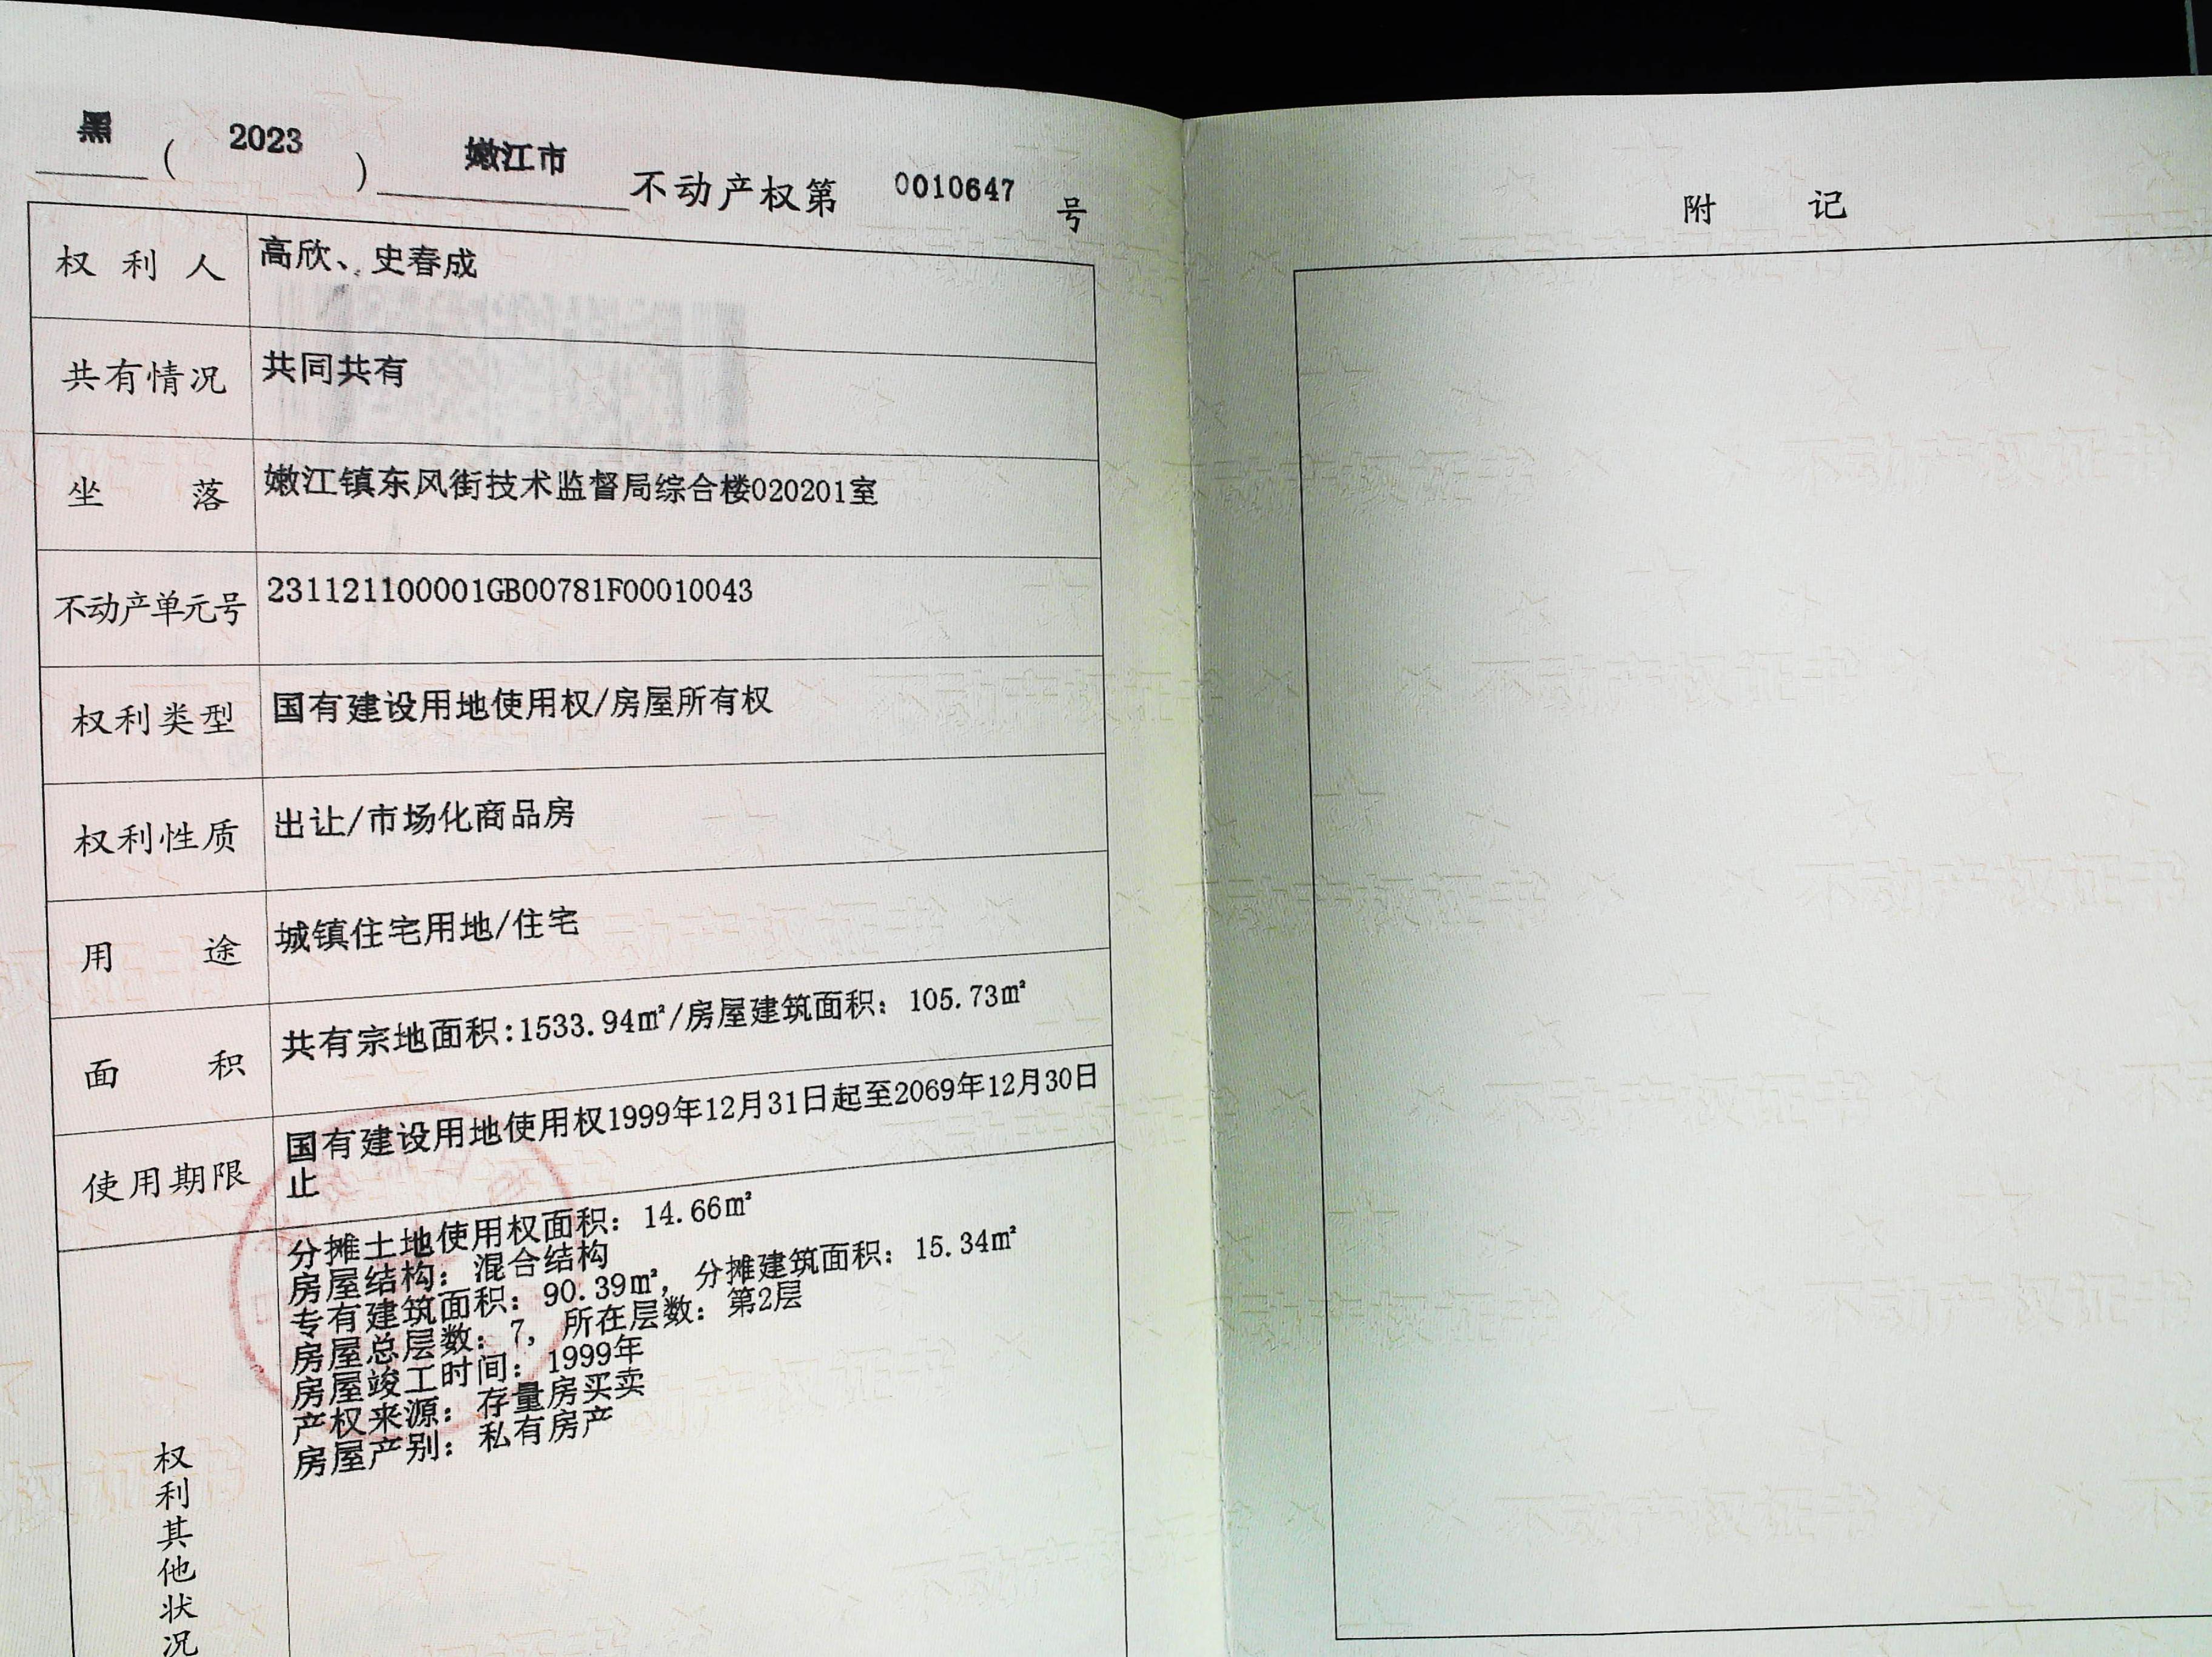 黑 ( 2023 ) 嫩江市 不动产权第 0010647 号
权利人 高欣、史春成
共有情况 共同共有
坐落 嫩江镇东风街技术监督局综合楼020201室
不动产单元号 231121100001GB00781F00010043
权利类型 国有建设用地使用权/房屋所有权
权利性质 出让/市场化商品房
用途 城镇住宅用地/住宅
面积 共有宗地面积:1533.94㎡/房屋建筑面积：105.73㎡
使用期限 国有建设用地使用权1999年12月31日起至2069年12月30日
止
权利其他状况
分摊土地使用权面积：14.66㎡
房屋结构：混合结构
专有建筑面积：90.39㎡，分摊建筑面积：15.34㎡
房屋总层数：7，所在层数：第2层
房屋竣工时间：1999年
产权来源：存量房买卖
房屋产别：私有房产
附记